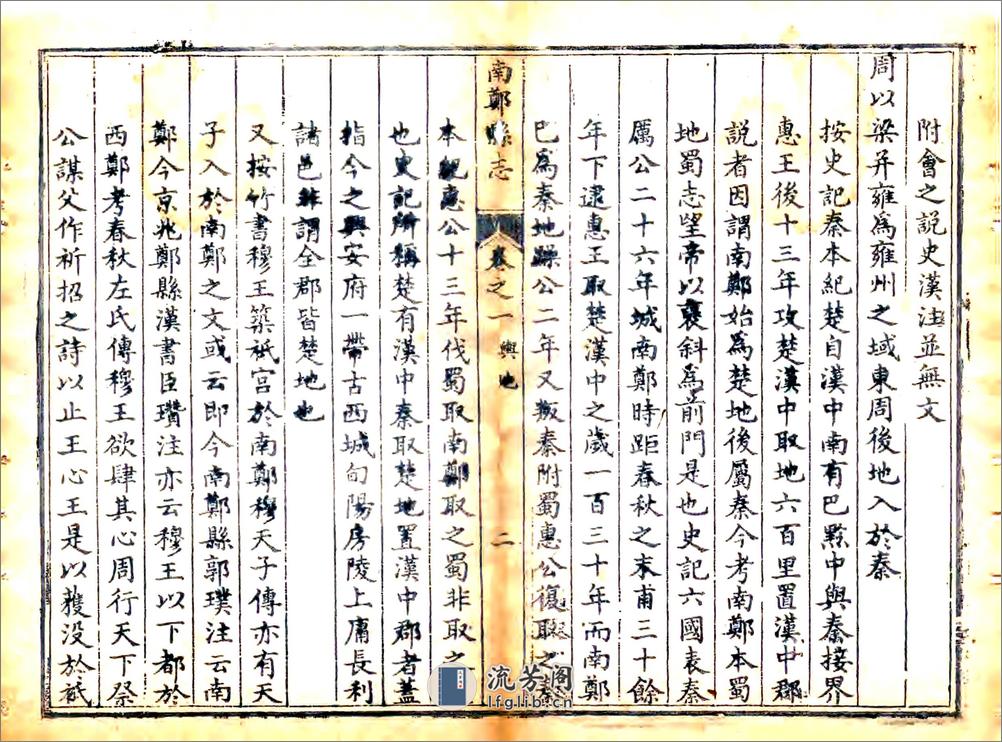 附會之説史漢注並無文
周以梁并雍爲雍州之域東周後地入於秦
按史記秦本紀楚自漢中南有巴黔中與秦接界
惠王後十三年攻楚漢中取地六百里置漢中郡
説者因謂南鄭始爲楚地後屬秦今考南鄭本蜀
地蜀志望帝以襃斜爲前門是也史記六國表秦
厲公二十六年城南鄭時距春秋之末甫三十餘
年下逮惠王取楚漢中之歲一百三十年而南鄭
巴爲秦地躁公二年又叛秦附蜀惠公復取之秦
南鄭縣志 卷之一 輿地 二
本紀惠公十三年伐蜀取南鄭取之蜀非取之
也史記所稱楚有漢中秦取楚地置漢中郡者蓋
指今之興安府一帶古西城旬陽房陵上庸長利
諸邑非謂全郡皆楚地也
又按竹書穆王築祇宮於南鄭穆天子傳亦有天
子入於南鄭之文或云即今南鄭縣郭璞注云南
鄭今京兆鄭縣漢書臣瓚注亦云穆王以下都於
西鄭考春秋左氏傳穆王欲肆其心周行天下祭
公謀父作祈招之詩以止王心王是以獲没於祇
流芳阁
lfglib.com